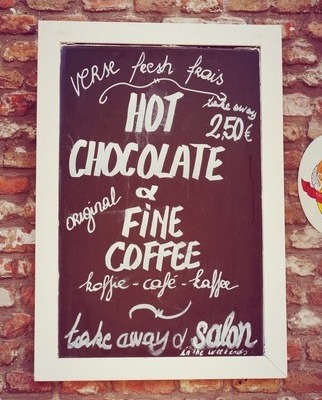 verse fresh frais
HOT
take away
2,50€
CHOCOLATE
&
original
FINE
COFFEE
koffie - café - kaffee
take away & salon
in the weekends